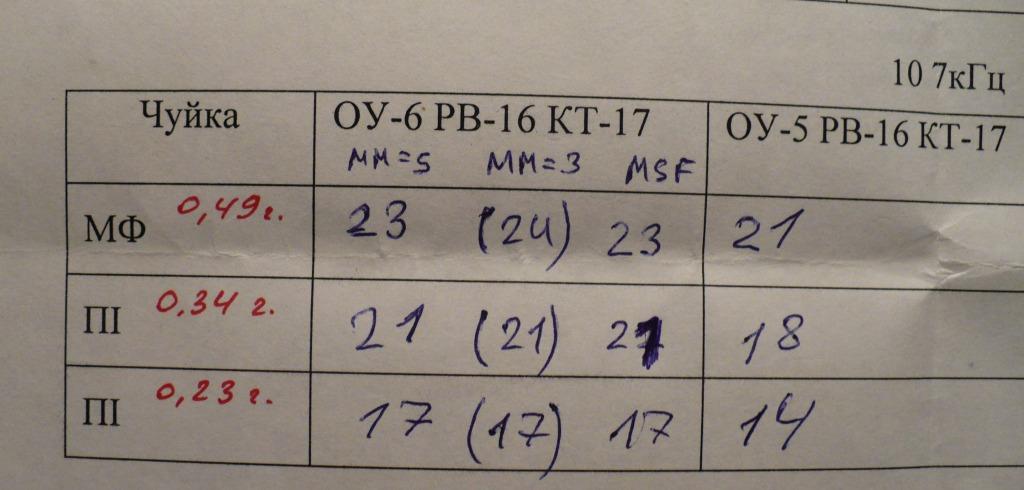 10 7кГц
Чуйка ОУ-6 РВ-16 КТ-17 ОУ-5 РВ-16 КТ-17
мм=5 мм=3 MSF
МФ 0,49г. 23 (24) 23 21
ПІ 0,34 г. 21 (21) 21 18
ПІ 0,23 г. 17 (17) 17 14